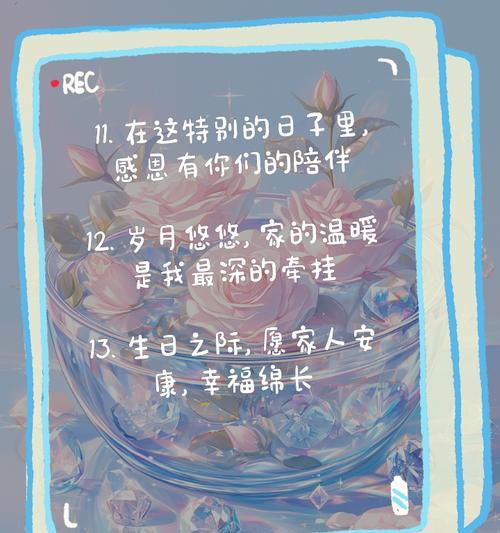 REC
11. 在这特别的日子里,
感恩有你们的陪伴
12. 岁月悠悠, 家的温暖
是我最深的牵挂
13. 生日之际, 愿家人安
康, 幸福绵长